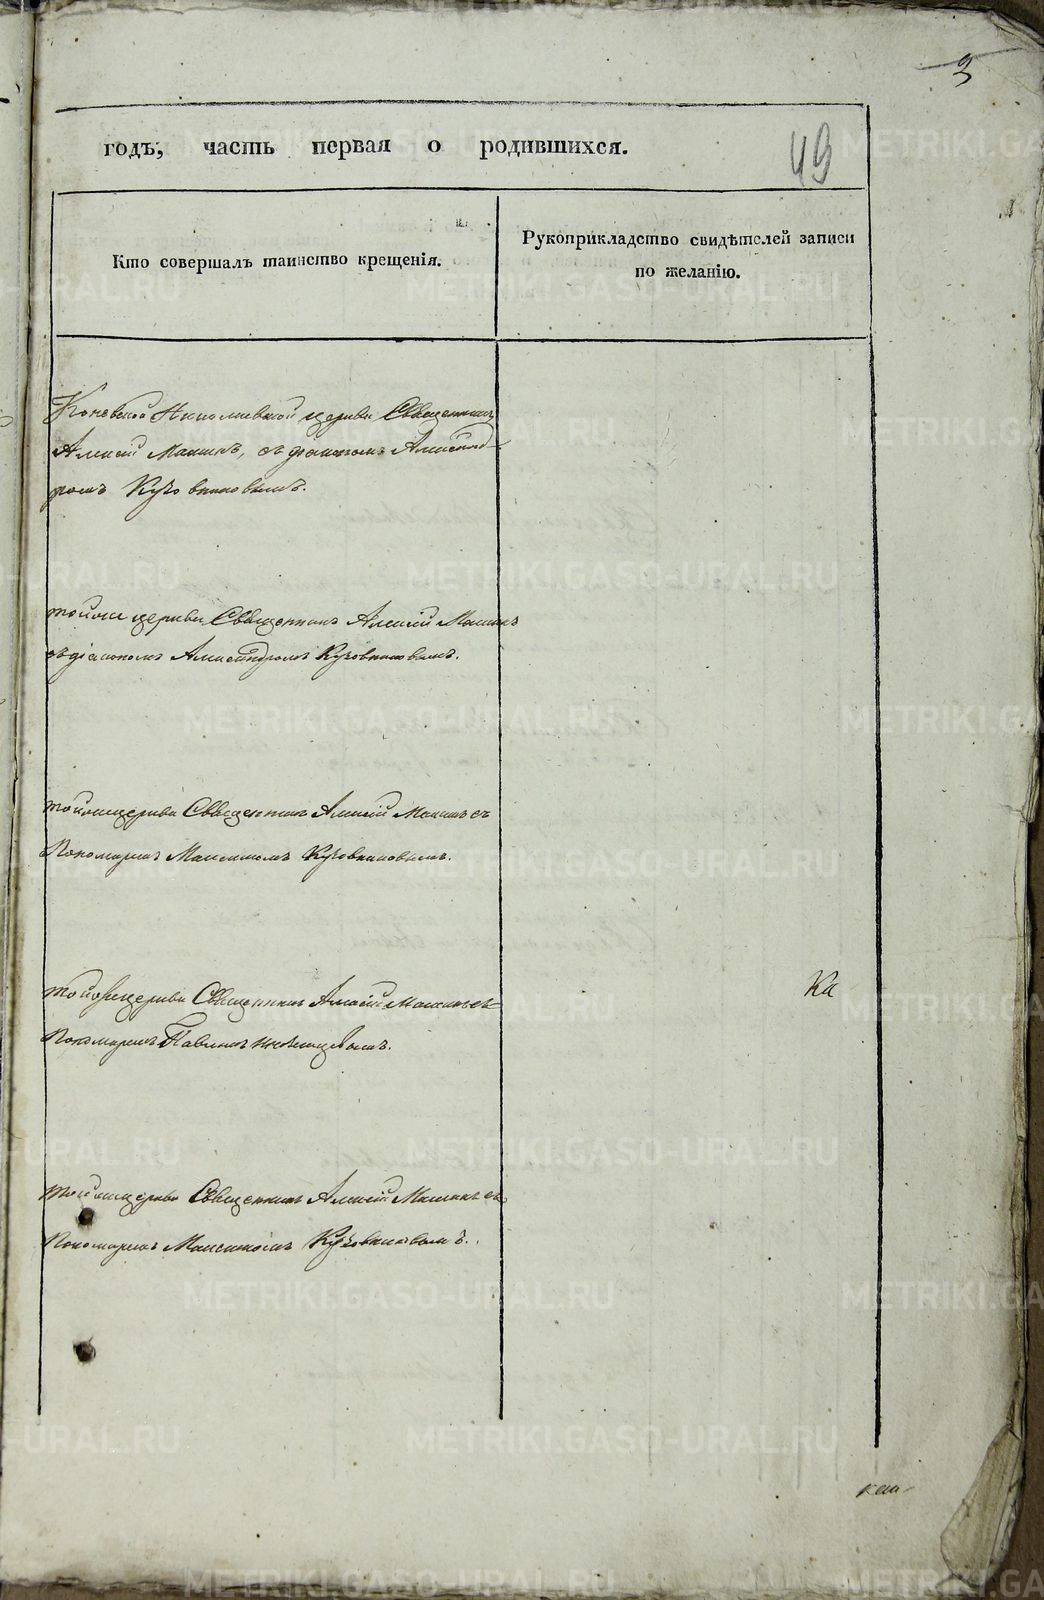 3
49
годъ, часть первая о родившихся.
Кто совершалъ таинство крещенія.
Рукоприкладство свидѣтелей записи
по желанію.
Коневской Николаевской церкви Священникъ
Алексій Макинъ, съ діакономъ Александ-
ромъ Кузовниковымъ.
тойже церкви Священникъ Алексій Макинъ
съ діакономъ Александромъ Кузовниковымъ.
тойже церкви Священникъ Алексій Макинъ съ
Пономаремъ Максимомъ Кузовниковымъ.
тойже церкви Священникъ Алексій Макинъ съ
Ка
Пономаремъ Павломъ
тойже церкви Священникъ Алексій Макинъ съ
Пономаремъ Максимомъ Кузовниковымъ.
METRIKI.GASO-URAL.RU